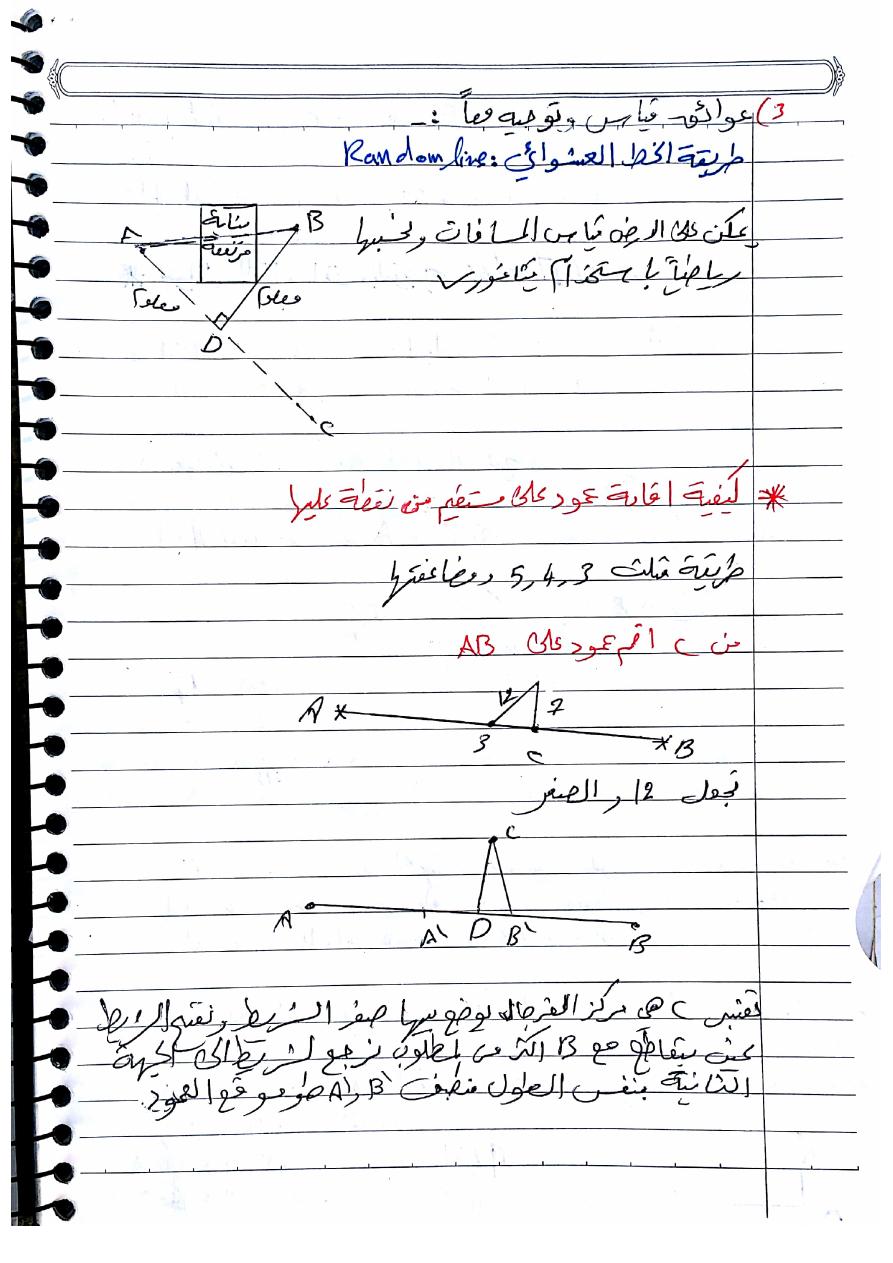 3) عوائق قياس وتوجيه معاً :-
طريقة الخط العشوائي: Random line
يمكن على الارض قياس المسافات ونحسبها
رياضياً باستخدام فيثاغورس
A
بناية
مرتفعة
B
معلوم
معلوم
D
C
* كيفية اقامة عمود على مستقيم من نقطة عليها
طريقة مثلث 3 , 4 , 5 ومضاعفتها
من C اقم عمود على AB
A
12
7
3
C
B
نجعل 12 , والصفر
C
A
A\
D
B\
B
تعتبر C هي مركز الفرجال يوضع بيها صفر الشريط ونفتح الشريط
بحيث يتقاطع مع B اكثر من المطلوب نرجع الشريط الى الجهة
الثانية بنفس الطول منصف B\ و A\ هو موقع العمود.